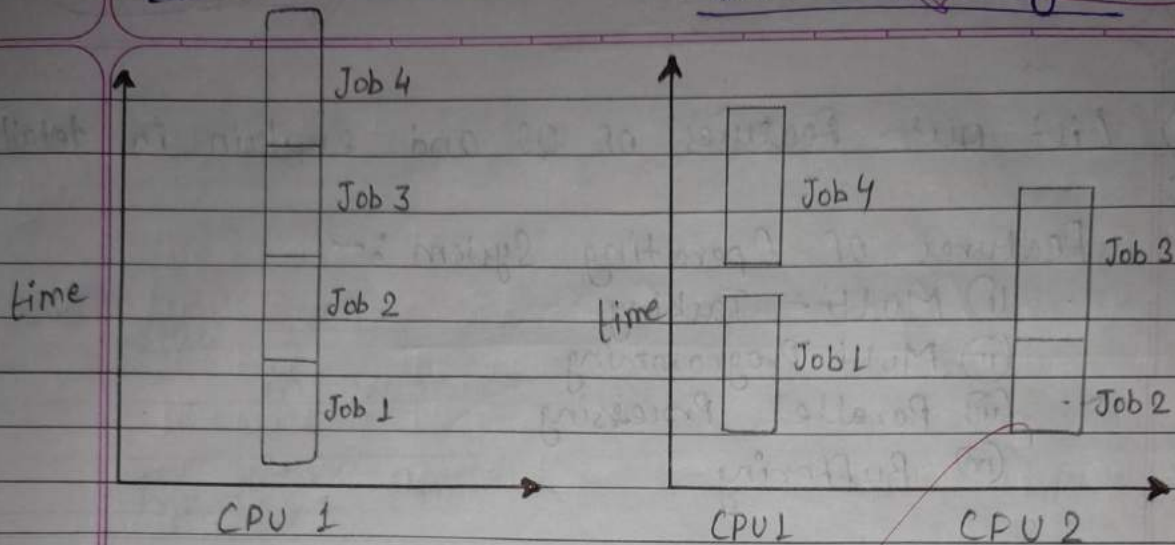 Job 4
Job 3
time
Job 2
Job 1
CPU 1
Job 4
Job 3
time
Job 1
Job 2
CPU 1 CPU 2